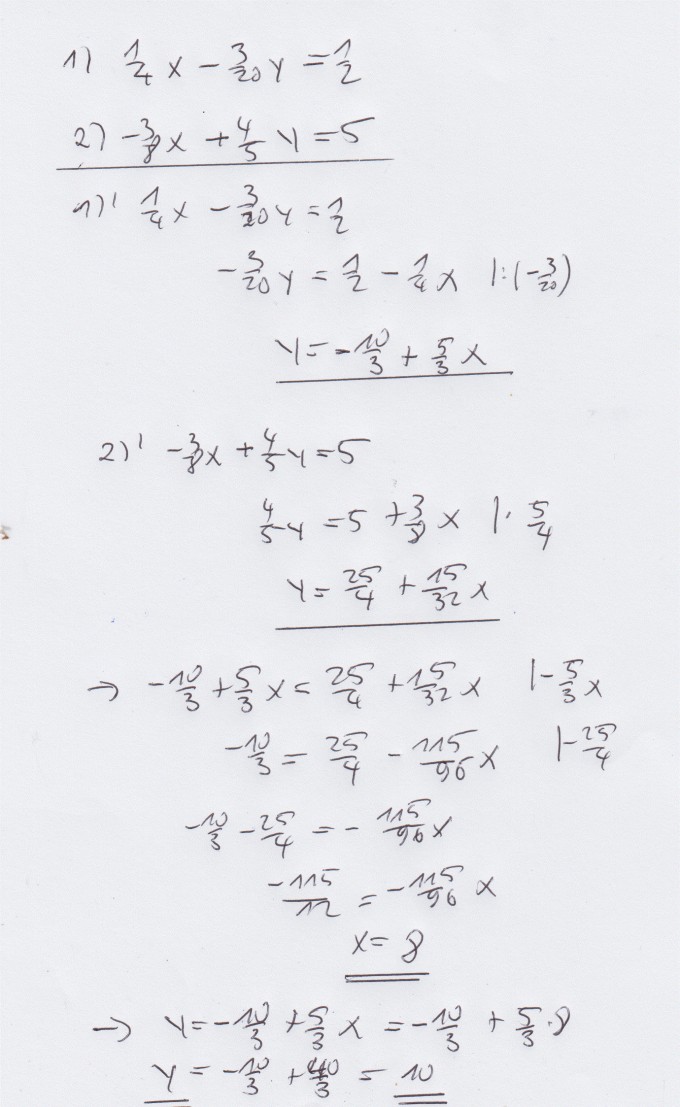 1) 1/4 x - 3/20 y = 1/2
2) -3/8 x + 4/5 y = 5
1)' 1/4 x - 3/20 y = 1/2
-3/20 y = 1/2 - 1/4 x |:(-3/20)
y = -10/3 + 5/3 x
2)' -3/8 x + 4/5 y = 5
4/5 y = 5 + 3/8 x |· 5/4
y = 25/4 + 15/32 x
→ -10/3 + 5/3 x = 25/4 + 15/32 x |- 5/3 x
-10/3 = 25/4 - 115/96 x |- 25/4
-10/3 - 25/4 = - 115/96 x
-115/12 = -115/96 x
x = 8
→ y = -10/3 + 5/3 x = -10/3 + 5/3 · 8
y = -10/3 + 40/3 = 10